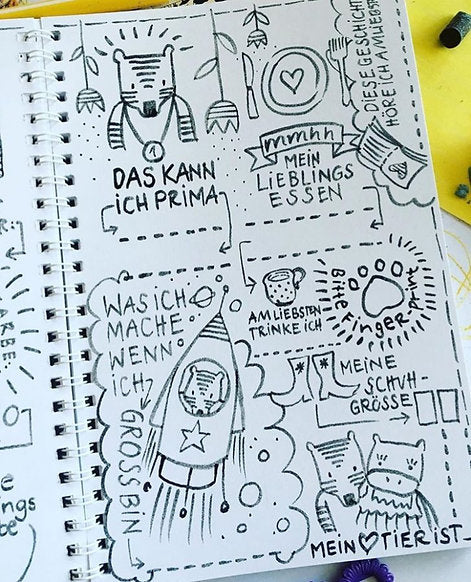 DAS KANN
ICH PRIMA
1
mmhh
MEIN
LIEBLINGS
ESSEN
DIESE GESCHICHTE
HÖRE ICH AM LIEBSTEN
WAS ICH
MACHE
WENN
ICH
GROSS BIN
AM LIEBSTEN
TRINKE ICH
Bitte Finger Print
MEINE
SCHUH-
GRÖSSE
MEIN ♡ TIER IST
ARBE:
e
ings
be